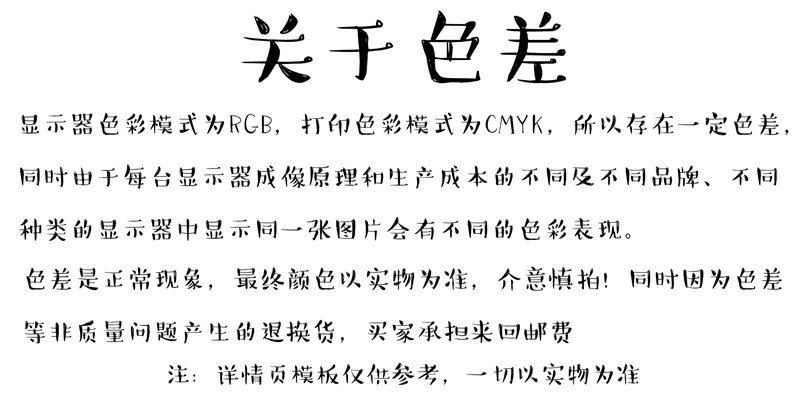 关于色差
显示器色彩模式为RGB，打印色彩模式为CMYK，所以存在一定色差，
同时由于每台显示器成像原理和生产成本的不同及不同品牌、不同
种类的显示器中显示同一张图片会有不同的色彩表现。
色差是正常现象，最终颜色以实物为准，介意慎拍！同时因为色差
等非质量问题产生的退换货，买家承担来回邮费
注：详情页模板仅供参考，一切以实物为准